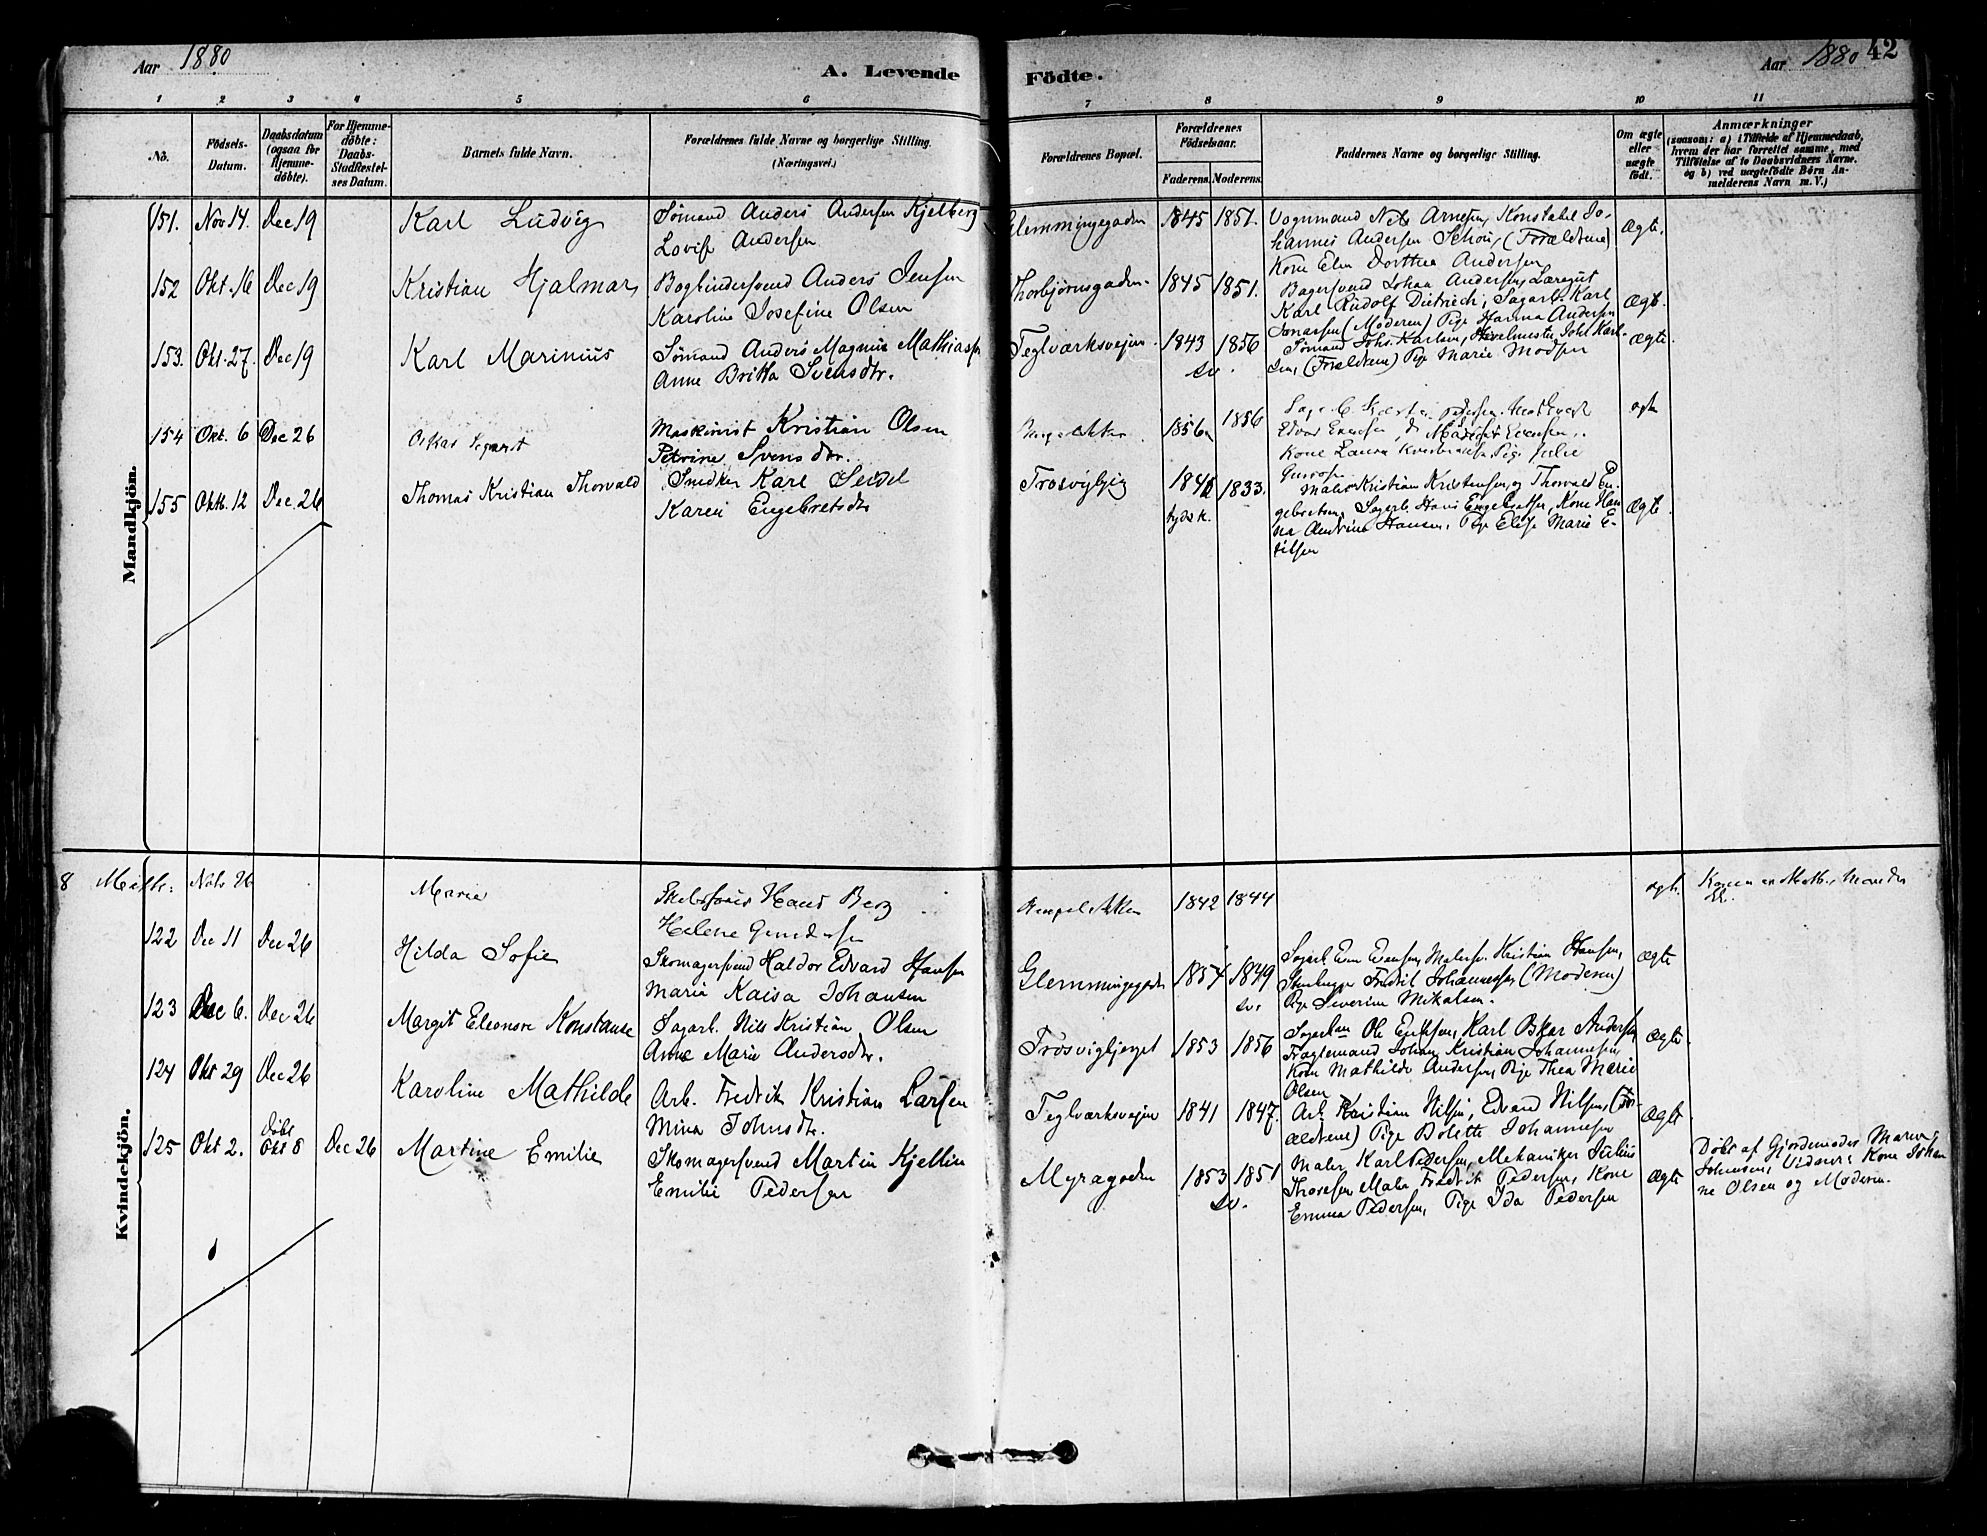 Aar 1880
A. Levende Födte.
Aar 1880 42
1 2 3 4 5 6 7 8 9 10 11
No.
Födsels-Datum.
Daabsdatum (ogsaa for Hjemme-döbte).
For Hjemme-döbte: Daabs-StadfæsteI-ses Datum.
Barnets fulde Navn.
Forældrenes fulde Navne og borgerlige Stilling.
(Næringsvei.)
Forældrenes Bopæl.
Forældrenes Födselsaar.
Faderens. Moderens.
Faddernes Navne og borgerlige Stilling.
Om ægte eller uægte födt.
Anmærkninger
(saasom: a) i Tilfælde af Hjemmedaab,
hvem der har forrettet samme, med
Tilföielse af to Daabsvidners Navne.
og b) ved uægtefödte Börn An-
melderens Navn m. V.)
Mandkjön.
151. Nov 14. Dec 19 Karl Ludvig Sømand Anders Andersen Kjelberg
Lovise Andersen
Glemmingegaden 1845 1851. Vognmand Nils Arnesen, Konstabel Jo-
hannes Andersen Schou, (Forældrene)
Kone Elen Dorthea Andersen
Ægte.
152 Okt. 16 Dec 19 Kristian Hjalmar Bogbindersvend Anders Jensen
Karoline Josefine Olsen
Thorbjørnsgaden 1845 1851. Bagersvend Johan Andersen, Læregut
Karl Rudolf Dietrich, Sagarb. Karl
Jonassen (Moderen) Pige Hanna Andersen
Ægte.
153. Okt. 27. Dec 19 Karl Marinius Sømand Anders Magnus Mathiasen
Anne Britta Svensdtr.
Teglværksvejen 1843 1856 sv. Sømand Johs. Karlsen, Johs Karl-
sen, (Forældrene) Pige Marie Madsen
Ægte
154 Okt. 6 Dec 26 Oskar Maskinist Kristian Olsen
Petrine Svensdtr.
1856 1856
Edvard
Kone Laura Pige Julie
ægte
155 Oktb. 12 Dec 26 Thomas Kristian Thorvald Snedker Karl Seidel
Karen Engebretsdtr
Trosvigbjerg 1833. tydsk. Maler Kristian Kristensen, Thorvald En-
gebretsen, Sagarb. Hans Engebretsen, Kone Han-
na Andrine Hansen, Pige Elise Marie E-
Ægte
Kvindekjön.
8 Novb 26 Marie Hans Berg
Helene Gundersen
1842 1844 ægte
122 Dec 11 Dec 26 Hilda Sofie Skomagersvend Haldor Edvard Hansen
Maria Kaisa Johansen
Glemmingegaden 1854 1849 sv. Sagarb. Even Evensen, Malersv. Kristian Hansen,
Stenhugger Fredrik Johannessen (Moderen)
Pige Severine Mikalsen.
Ægte
123 Dec 6. Dec 26 Margit Eleonore Konstanse Sagarb. Nils Kristian Olsen
Anne Marie Andersdtr.
Trosvigbjerget 1853 1856 Ole Eriksen, Karl Oskar Andersen,
Fragtemand Johan Kristian Johannesen,
Kone Mathilde Andersen, Pige Thea Marie
Olsen
Ægte
124 Okt 29 Dec 26 Karoline Mathilde Arb. Fredrik Kristian Larsen
Mina Johnsdtr.
Teglværksvejen 1841 1847. Arb. Kristian Nilsen, Edvard Nilsen, (For-
ældrene) Pige Bolette Johannesen
Ægte
125 Okt 2. Døbt Okt 8 Dec 26 Martine Emilie Skomagersvend Martin Kjellin
Emilie Pedersen
Myragaden 1853 1851 sv. Maler Karl Pedersen, Mekaniker Julius
Thoresen, Maler Fredrik Pedersen, Kone
Emma Pedersen, Pige Ida Pedersen
Ægte
Døbt af Gjordemoder Maren
Johansen, Vidner: Kone Johan-
ne Olsen og Moderen.